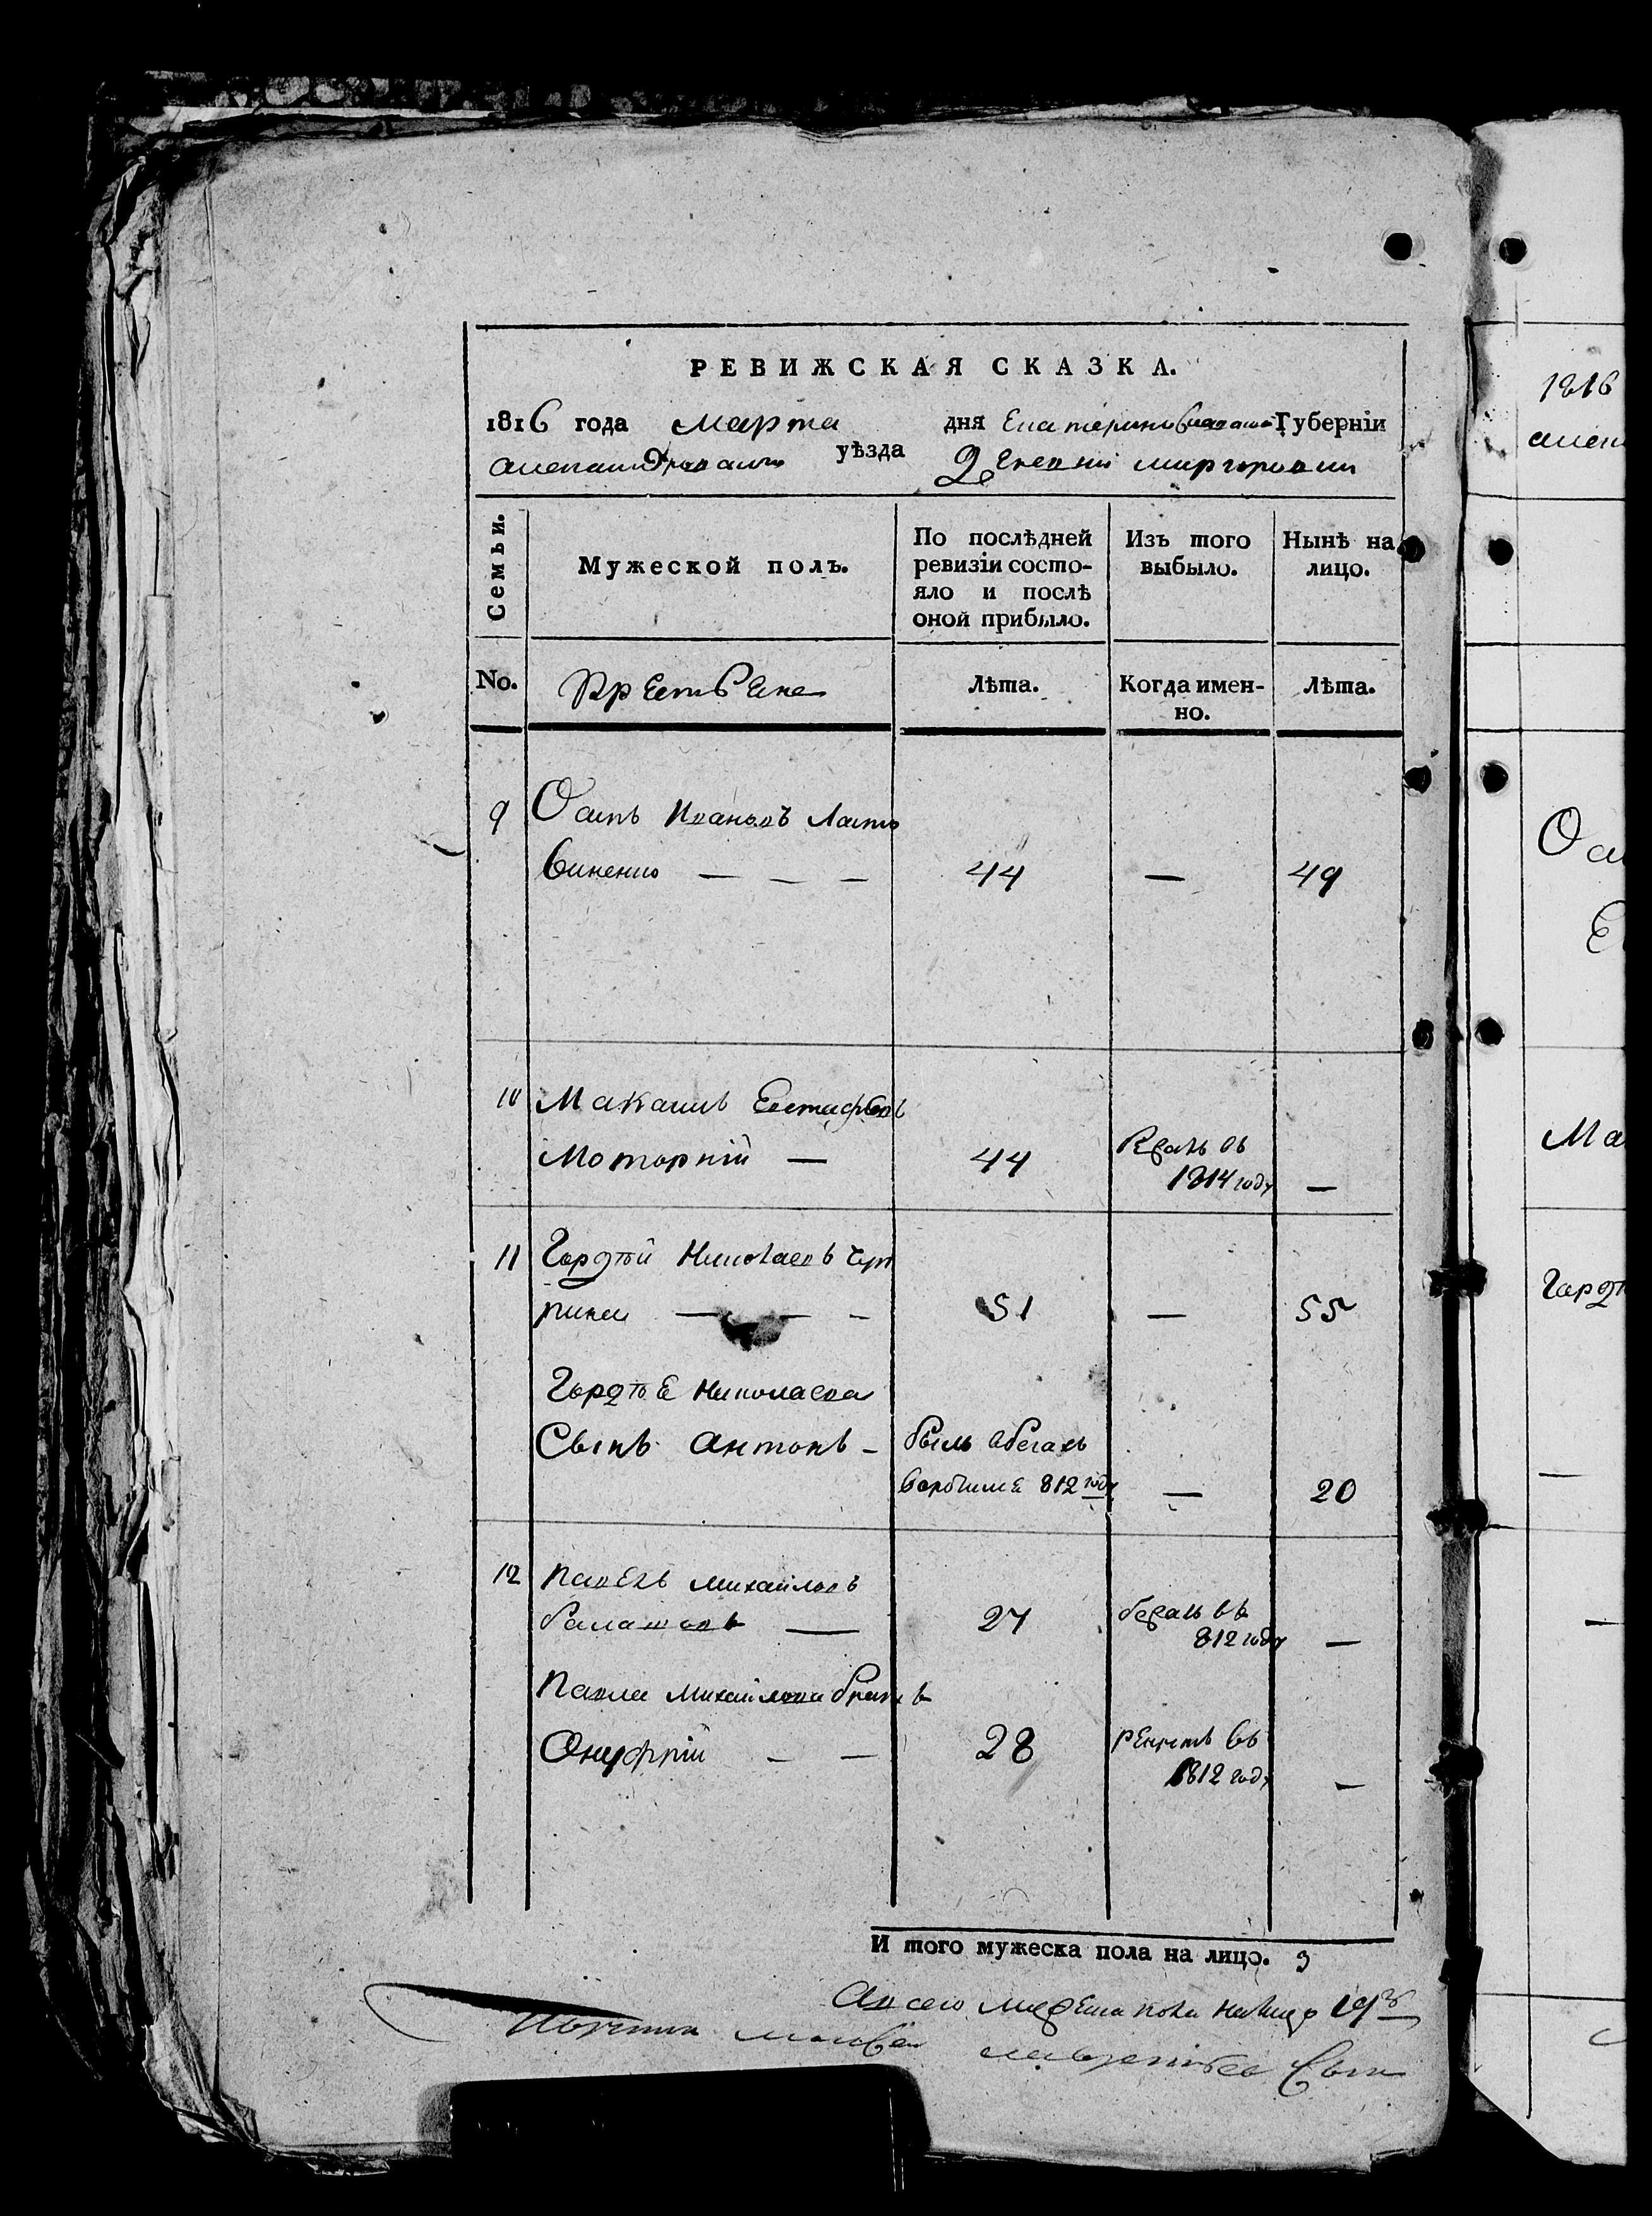 РЕВИЖСКАЯ СКАЗКА.
1816 года Марта дня Екатеринославской Губерніи
александровскаго уѣзда
Семьи.
Мужеской полъ.
По послѣдней ревизіи состо-
яло и послѣ
оной прибыло.
Изъ того
выбыло.
Нынѣ на
лицо.
No.
Лѣта.
Когда имен-
но.
Лѣта.
9 Осипъ Ивановъ Лит
виненко — — — 44 — 49
10 Макаръ Евстафѣевъ
Моторній — 44 бѣжалъ въ
1814 году —
11 Гордѣй Николаевъ
51 — 55
Гордѣя Николаева
Сынъ Антонъ – былъ вбегахъ
812 году — 20
12 Павелъ Михайловъ
— 27 бежалъ въ
812 году —
Павла Михайлова братъ
Онуфрій — — 28 рекрутъ въ
1812 году —
И того мужеска пола на лицо. 3
А всего мужеска пола налицо 19
1816
Ма